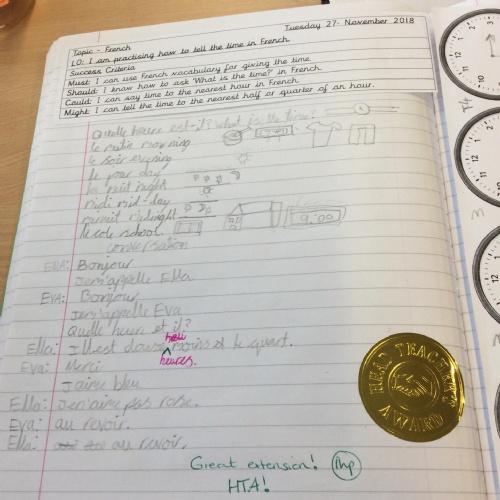 Tuesday 27 November 2018
Topic - French
LO: I am practising how to tell the time in French.
Success Criteria
Must: I can use French vocabulary for giving the time.
Should: I know how to ask 'What is the time?' in French.
Could: I can say time to the nearest hour in French.
Might: I can tell the time to the nearest half or quarter of an hour.
Quelle heure est-il? what is the time?
le matin morning
le soir evening
le jour day
la nuit night
midi mid-day
minuit midnight
l'ecole school
9:00
conversation
Ella: Bonjour
Jem'appelle Ella
Eva: Bonjour
Jem'appelle Eva
Quelle heure et il?
Ella: Ill est douse moins et le quart.
heures.
Eva: Merci
J'aime bleu
Ella: Jen'aime pas rose.
Eva: au revoir.
Ella: au revoir.
Great extension!
HTA!
HEAD TEACHER
AWARD